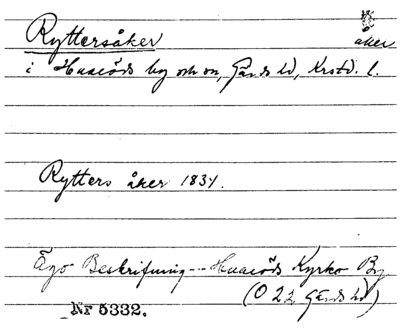 Ryttersåker
åker
i Huaröds by och sn, Gärds hd, Krstd. l.
Rytters åker 1834.
Ägo Beskrifning --- Huaröds Kyrko By
(O 22 Gärds hd)
Nr 5332.